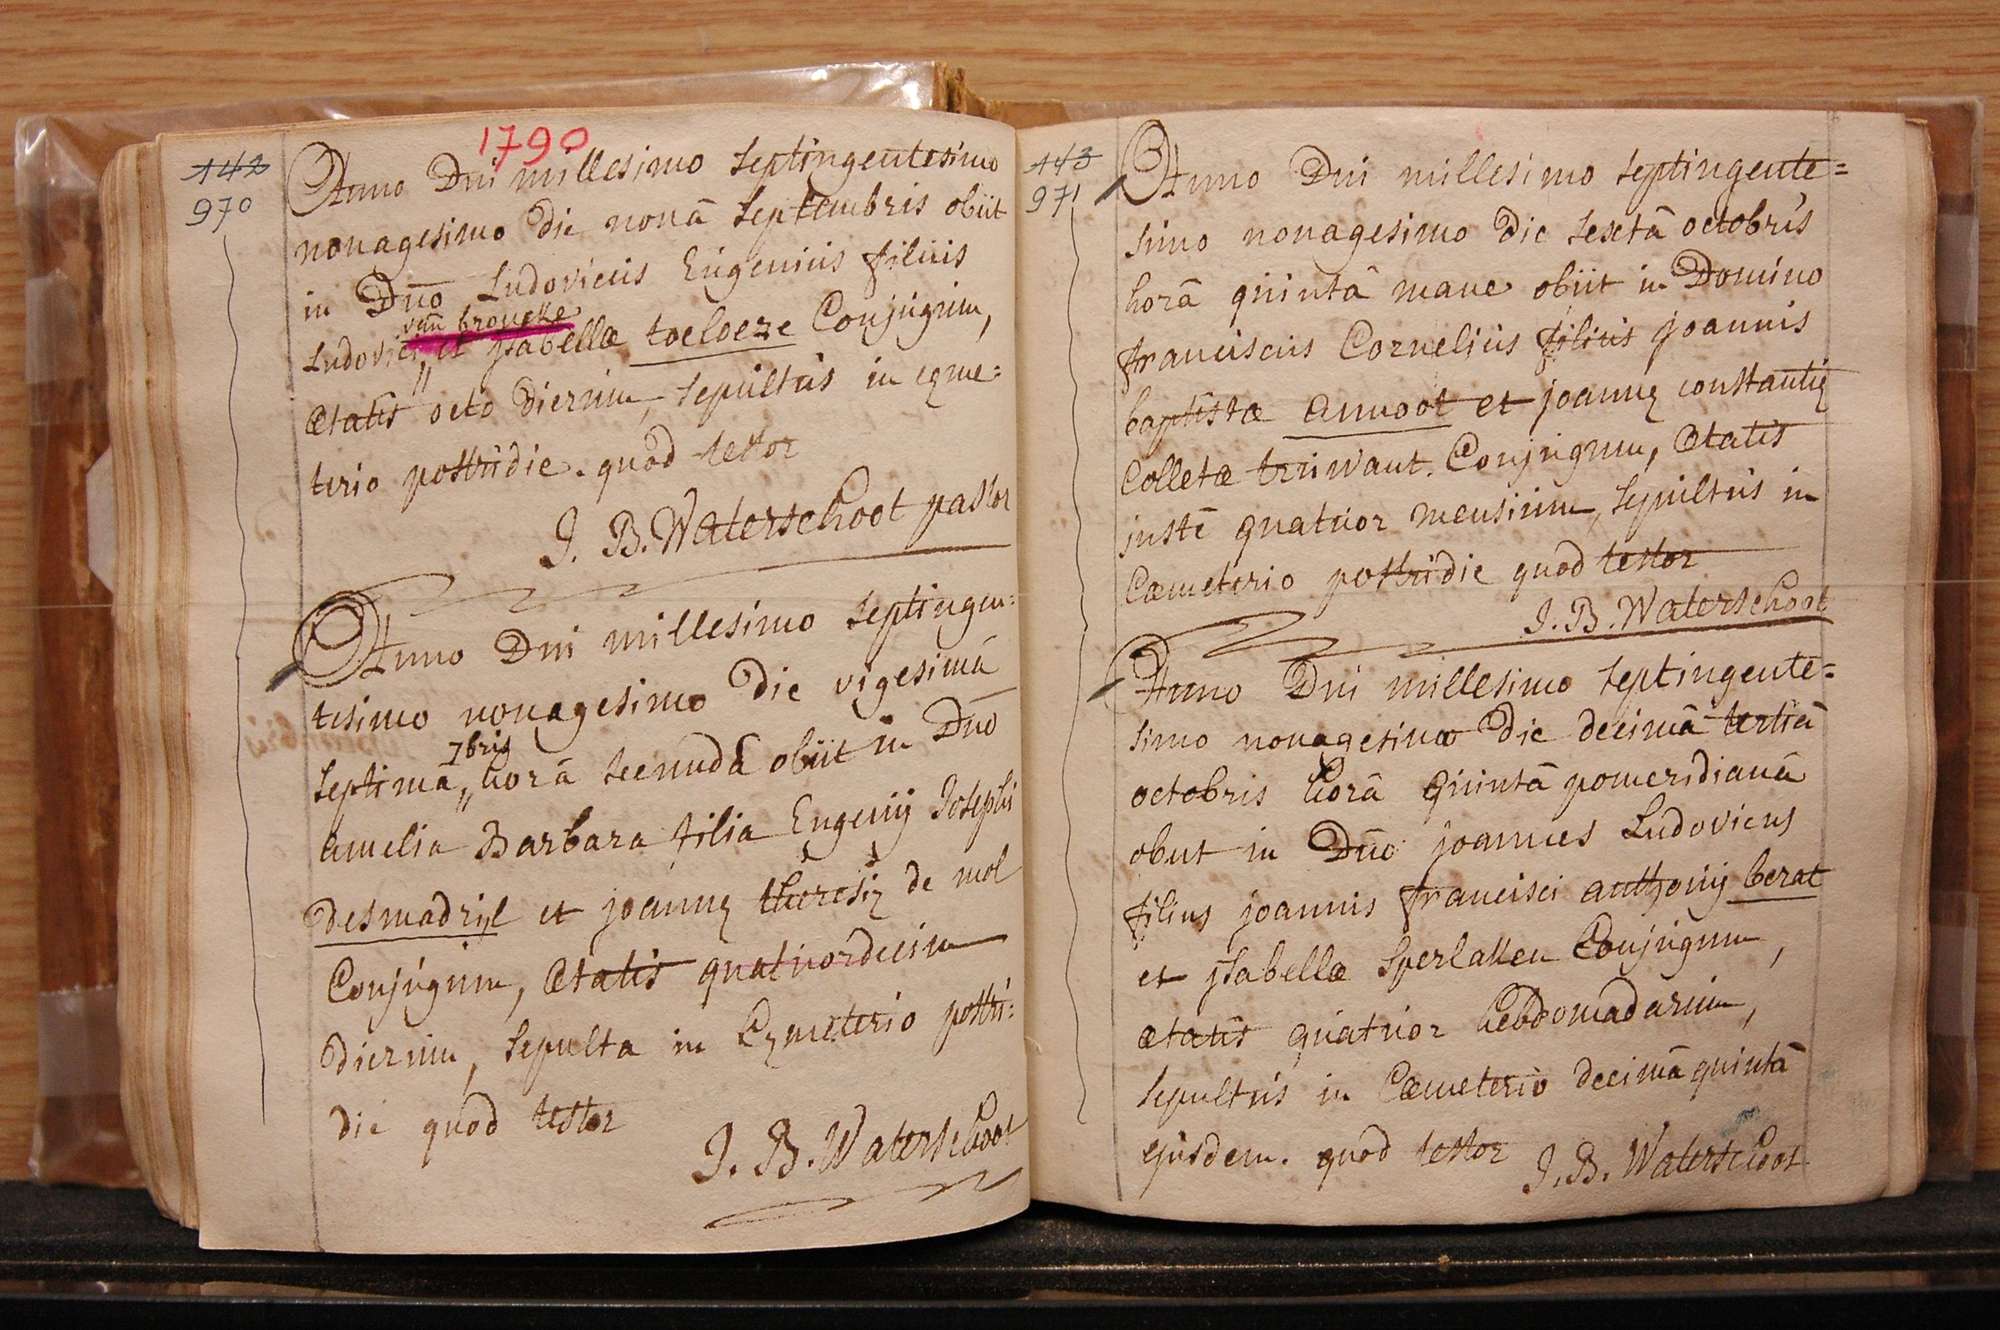 1790
142
970
Anno Dni millesimo septingentesimo
nonagesimo die nonâ septembris obiit
in Dño Ludovicus Eugenius filius
van broucke
Ludovici " et ysabellæ toeloeze Conjugum,
ætatis octo dierum, sepultus in cyme=
terio postridie. quod testor
J. B. Waterschoot pastor
Anno Dni millesimo septingen=
tesimo nonagesimo die vigesimâ
7bris
septimâ " horâ secundâ obiit in Dño
amelia Barbara filia Eugenij Josephi
Desmadryl et joannæ theresiæ de mol
Conjugum, ætatis quatuordecim
dierum, sepulta in Cymeterio postri=
die quod testor
J. B. Waterschoot
143
971
Anno Dni millesimo septingente=
simo nonagesimo die sextâ octobris
horâ quintâ mane obiit in Domino
franciscus Cornelius filius joannis
baptistæ annoot et joannæ constantiæ
Colletæ truwant. Conjugum, ætatis
justè quatuor mensium, sepultus in
Cæmeterio postridie quod testor
J. B. Waterschoot
Anno Dni millesimo septingente=
simo nonagesimo die decimâ tertiâ
octobris horâ quintâ pomeridianâ
obiit in Dño joannes Ludovicus
filius joannis francisci anthonij berat
et ysabellæ sperlaken Conjugum,
ætatis quatuor hebdomadarum,
sepultus in Cæmeterio decimâ quintâ
ejusdem. quod testor J. B. Waterschoot